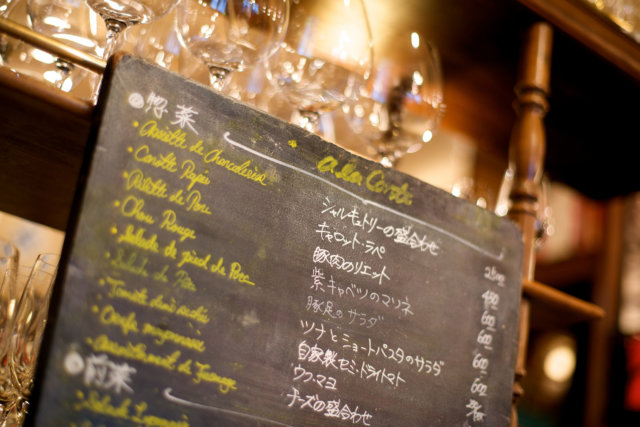 a la Carte
惣菜
Assiette de Charcuterie シャルキュトリーの盛合わせ
Carotte Rapée キャロット・ラペ
Rillette de Porc 豚肉のリエット
Chou Rouge 紫キャベツのマリネ
Salade de pied de Porc 豚足のサラダ
Salade de ツナとショートパスタのサラダ
Tomate 自家製セミ・ドライトマト
Oeufs mayonnaise ウフ・マヨ
Assortiment de Fromage チーズの盛合わせ
前菜